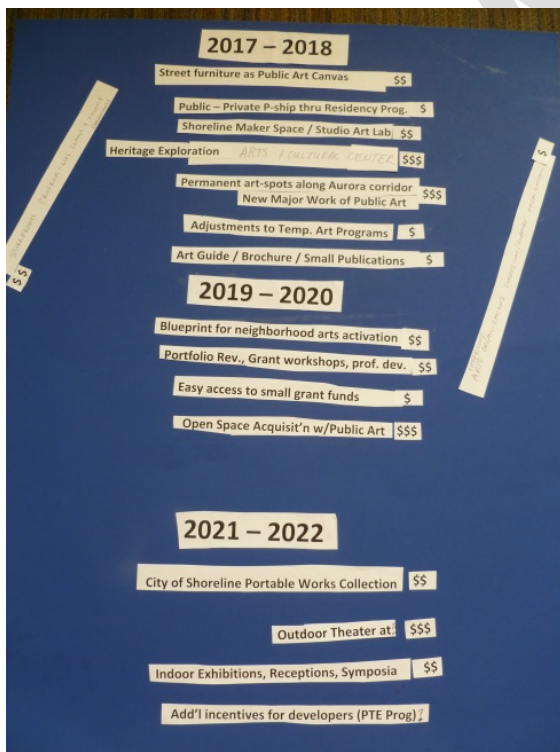 2017 – 2018
Street furniture as Public Art Canvas $$
Public – Private P-ship thru Residency Prog. $
Shoreline Maker Space / Studio Art Lab $$
Heritage Exploration ARTS / CULTURAL CENTER $$$
Permanent art-spots along Aurora corridor $$$
New Major Work of Public Art
Adjustments to Temp. Art Programs $
Art Guide / Brochure / Small Publications $
$$
$
2019 – 2020
Blueprint for neighborhood arts activation $$
Portfolio Rev., Grant workshops, prof. dev. $$
Easy access to small grant funds $
Open Space Acquisit'n w/Public Art $$$
2021 – 2022
City of Shoreline Portable Works Collection $$
Outdoor Theater at $$$
Indoor Exhibitions, Receptions, Symposia $$
Add'l incentives for developers (PTE Prog)?